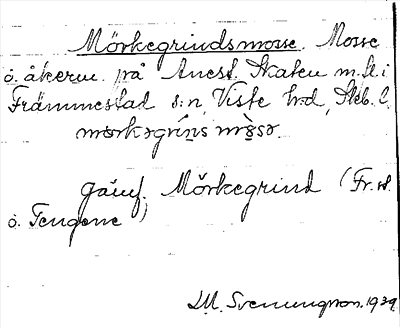 Mörkegrindsmosse. Mosse
o. åkerm. på Anest. Skaten m.fl. i
Främmestad s:n, Viste h:d, Skb. l.
mörkəgrins mòsə.
Jämf. Mörkegrind (Fr. sd.
o. Tengene)
D.M. Svenungsson. 1939.